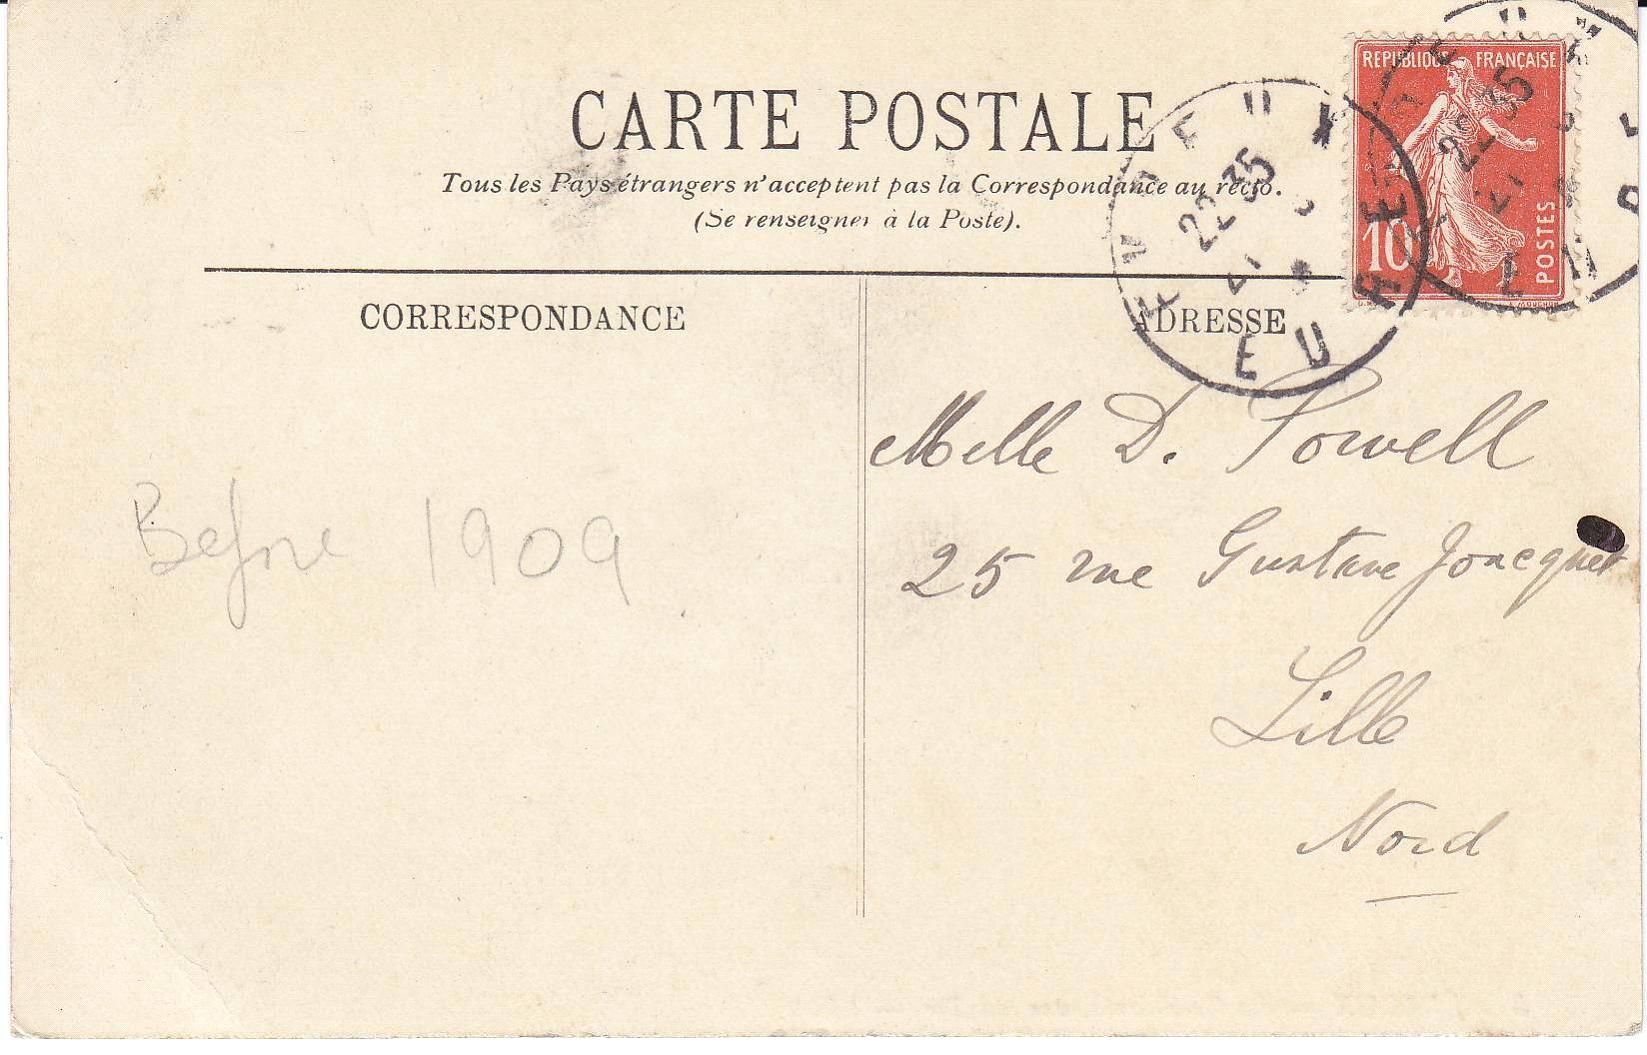 CARTE POSTALE
Tous les Pays étrangers n'acceptent pas la Correspondance au recto.
(Se renseigner à la Poste).
REPUBLIQUE FRANÇAISE
10
POSTES
22 35
22 35
EURE
CORRESPONDANCE
ADRESSE
Melle D. Powell
25 rue Gustave Joncquet
Lille
Nord
Before 1909